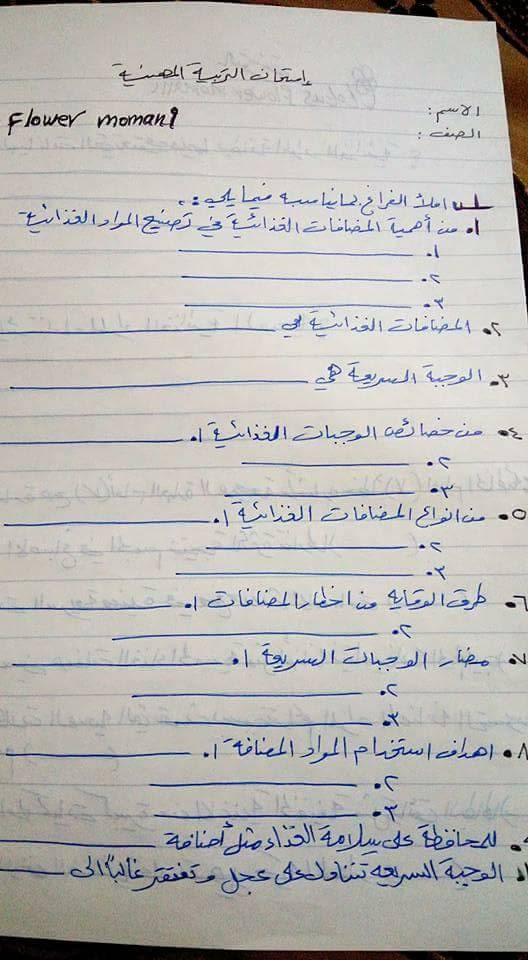 إمتحان التربية المهنية
الاسم:
Flower momani
الصف:
س١ املأ الفراغ بما يناسبه فيما يلي:
١. من أهمية المضافات الغذائية في تصنيع المواد الغذائية
١.
٢.
٣.
٢. المضافات الغذائية هي
٣. الوجبة السريعة هي
٤. من خصائص الوجبات الغذائية ١.
٢.
٣.
٥. من انواع المضافات الغذائية ١.
٢.
٣.
٦. طرق الوقاية من اخطار المضافات ١.
٢.
٧. مضار الوجبات السريعة ١.
٢.
٣.
٨. اهداف استخدام المواد المضافة ١.
٢.
٣.
للمحافظة على سلامة الغذاء مثل أضافة
الوجبة السريعه تتناول على عجل وتفتقر غالباً الى